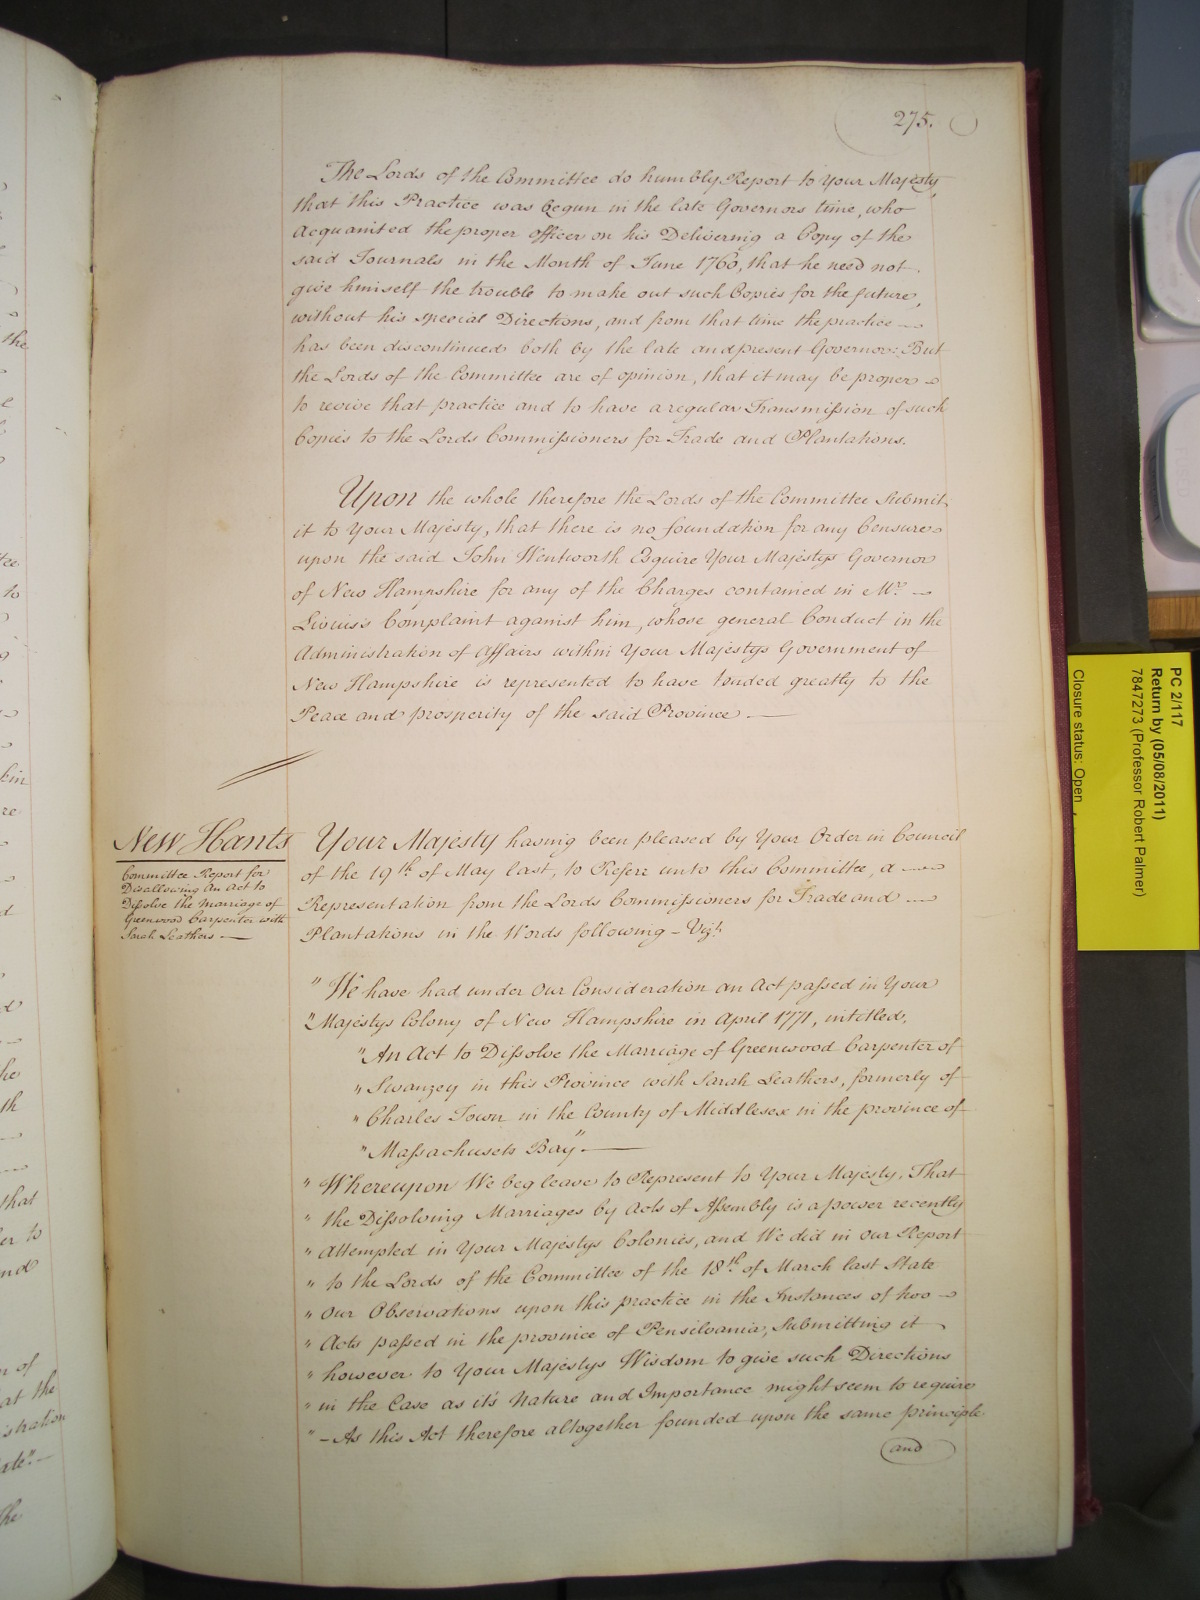 275.
The Lords of the Committee do humbly Report to Your Majesty,
that this Practice was begun in the late Governors time, who
Acquainted the proper officer on his Delivering a Copy of the
said Journals in the Month of June 1760, that he need not
give himself the trouble to make out such Copies for the future,
without his special Directions, and from that time the practice
has been discontinued both by the late and present Governor: But
the Lords of the Committee are of opinion, that it may be proper
to revive that practice and to have a regular Transmission of such
Copies to the Lords Commissioners for Trade and Plantations.
Upon the whole therefore the Lords of the Committee Submit
it to Your Majesty, that there is no foundation for any Censure
upon the said John Wentworth Esquire Your Majestys Governor
of New Hampshire for any of the Charges contained in Mr.
Livius's Complaint against him, whose general Conduct in the
Administration of Affairs within Your Majestys Government of
New Hampshire is represented to have tended greatly to the
Peace and prosperity of the said Province —
New Hants
Committee Report for
Disallowing An Act to
Dissolve the Marriage of
Greenwood Carpenter with
Sarah Leathers —
Your Majesty having been pleased by Your Order in Council
of the 19th of May last, to Refere unto this Committee, a
Representation from the Lords Commissioners for Trade and
Plantations in the Words following – Vizt.
" We have had under Our Consideration an Act passed in Your
" Majestys Colony of New Hampshire in April 1771, intitled,
" An Act to Dissolve the Marriage of Greenwood Carpenter of
" Swanzey in this Province with Sarah Leathers, formerly of
" Charles Town in the County of Middlesex in the province of
" Massachusets Bay" —
" Whereupon We beg leave to Represent to Your Majesty, That
" the Dissolving Marriages by Acts of Assembly is a power recently
" Attempted in Your Majestys Colonies, and We did in our Report
" to the Lords of the Committee of the 18th of March last State
" Our Observations upon this practice in the Instances of two
" Acts passed in the province of Pensilvania, Submitting it
" however to Your Majestys Wisdom to give such Directions
" in the Case as it's Nature and Importance might seem to require
" – As this Act therefore altogether founded upon the same principle
and
PC 2/117
Return by (05/08/2011)
7847273 (Professor Robert Palmer)
Closure status: Open